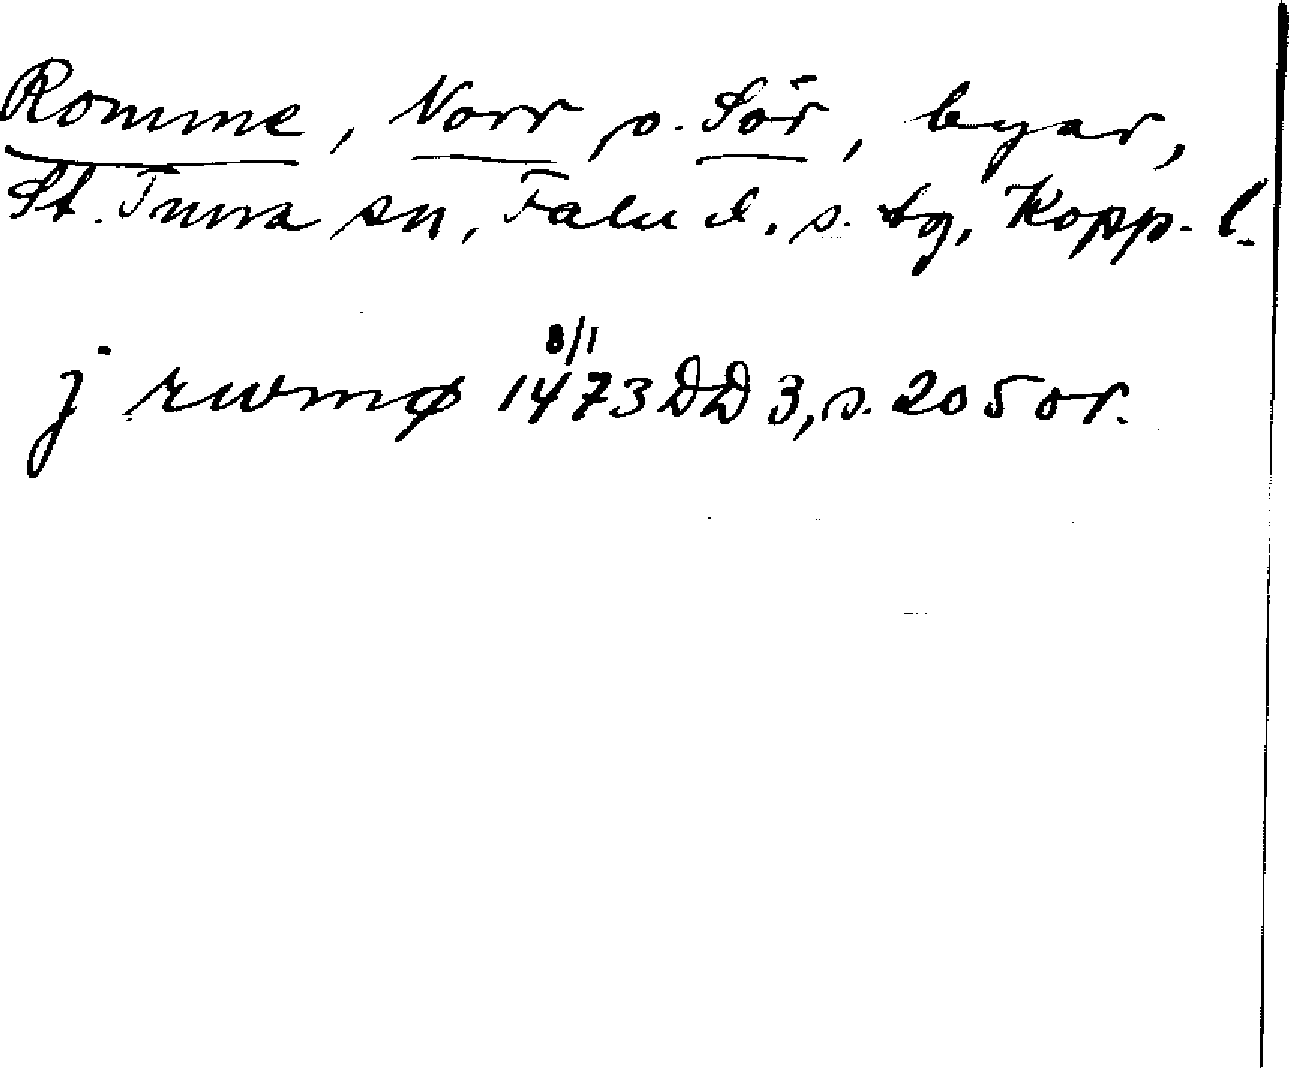 Romme, Norr o. Sör, byar,
St. Tuna sn, Falu d. s. tg, Kopp. l.
j rwmø 1473 8/1 DD 3, s. 205 or.